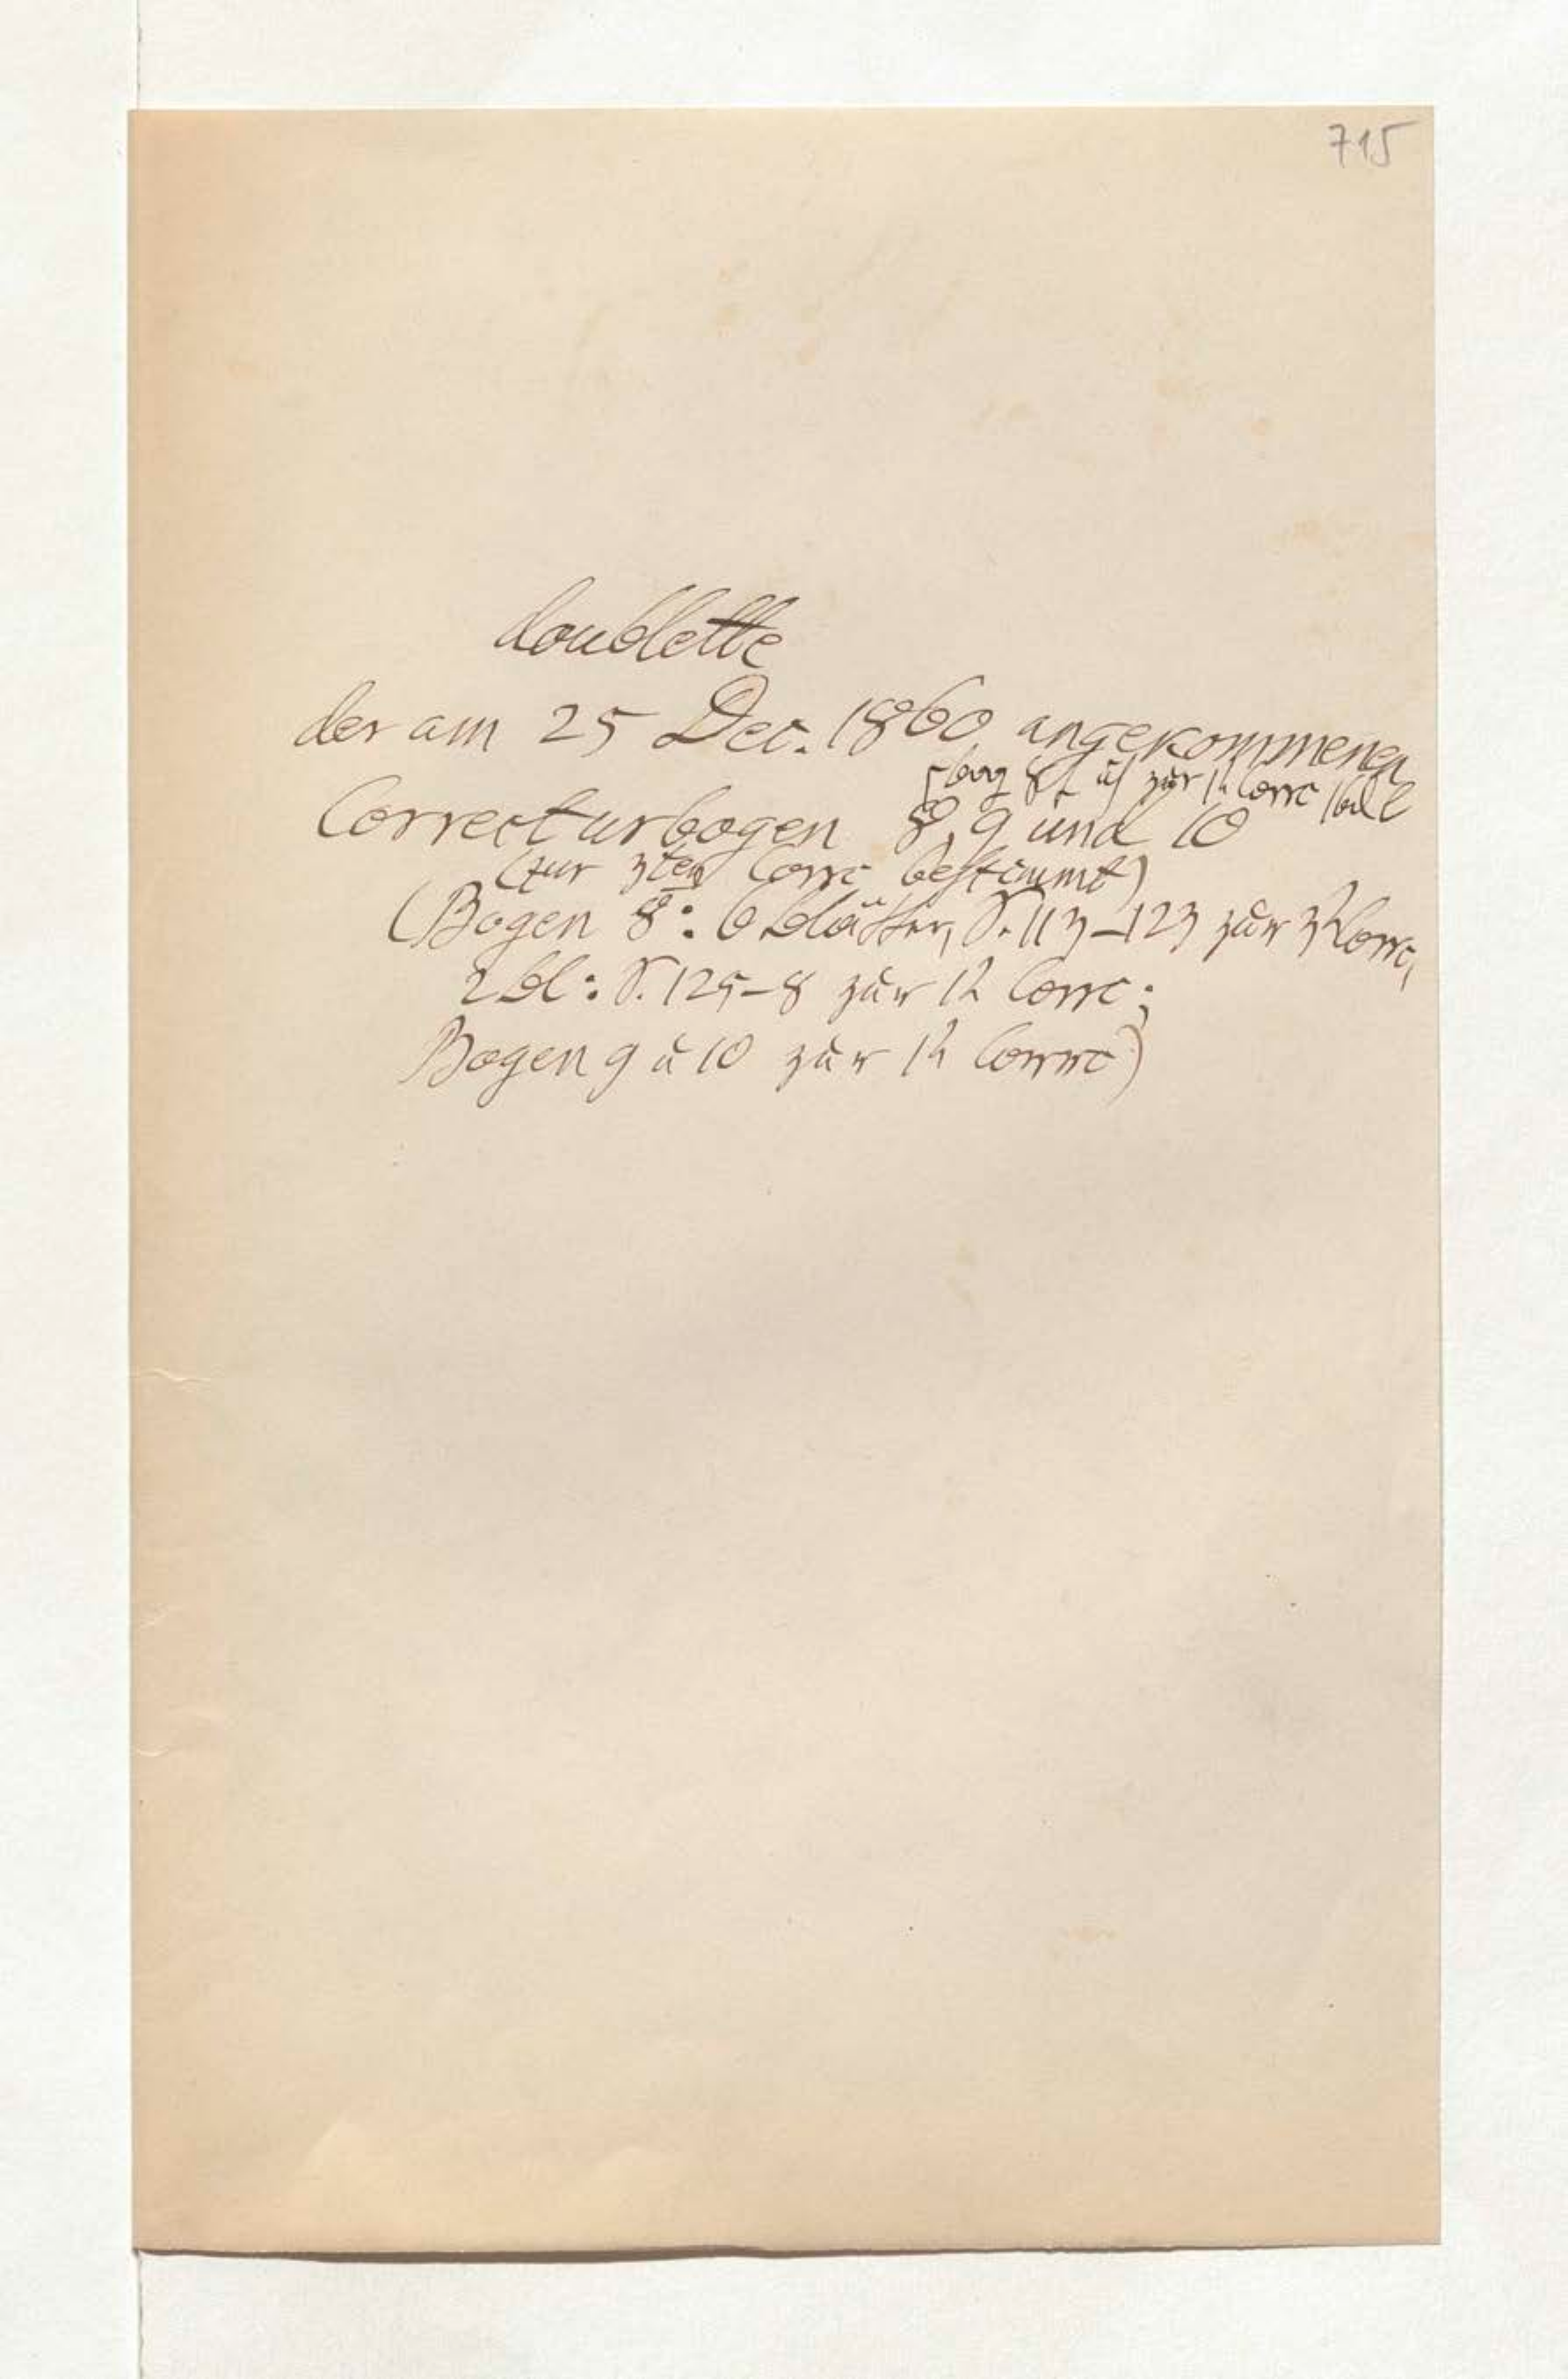 715
doublette
der am 25 Dec. 1860 angekommenen
zur 1t Corrc
Correcturbogen 8, 9 und 10
(zur 3ten Corrc bestimmt)
(Bogen 8: 6 blätter, S. 113–123 zur 3t Corrc,
2 bl: S. 125–8 zur 1t Corrc;
Bogen 9 u 10 zur 1t Corrc)